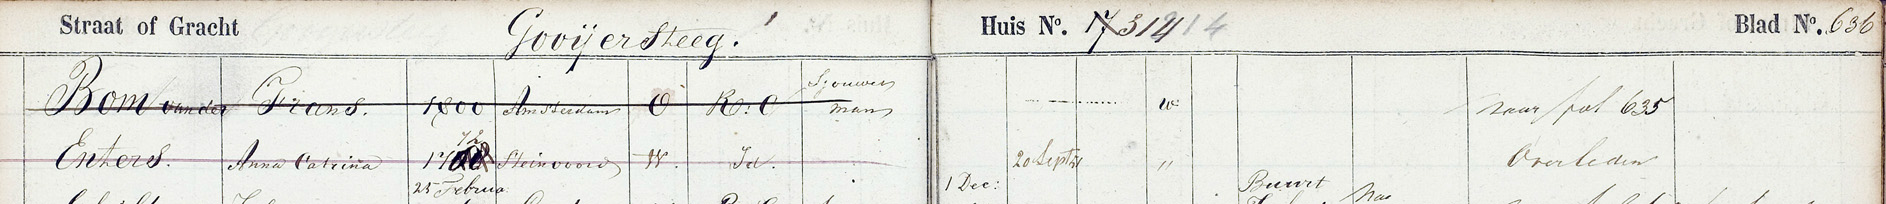 Straat of Gracht Gooijersteeg. Huis No. 314 14 Blad No. 636
Sjouwer
Bom van der Frans. 1800 Amsterdam O R: C man w naar fol 635
72
Enters. Anna Catrina 17 Steinvoord W. Id. 20 Sept " Overleden
25 Februa: 1 Dec: Buurt